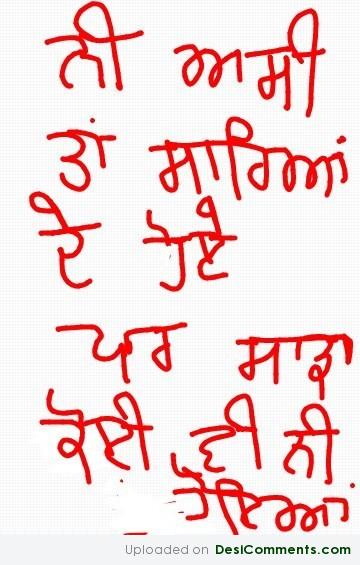 ਨੀ ਅਸੀ
ਤਾਂ ਸਾਰਿਆਂ
ਦੇ ਹੋਏ
ਪਰ ਸਾਡਾ
ਕੋਈ ਵੀ ਨੀ
ਹੋਇਆਂ
Uploaded on DesiComments.com